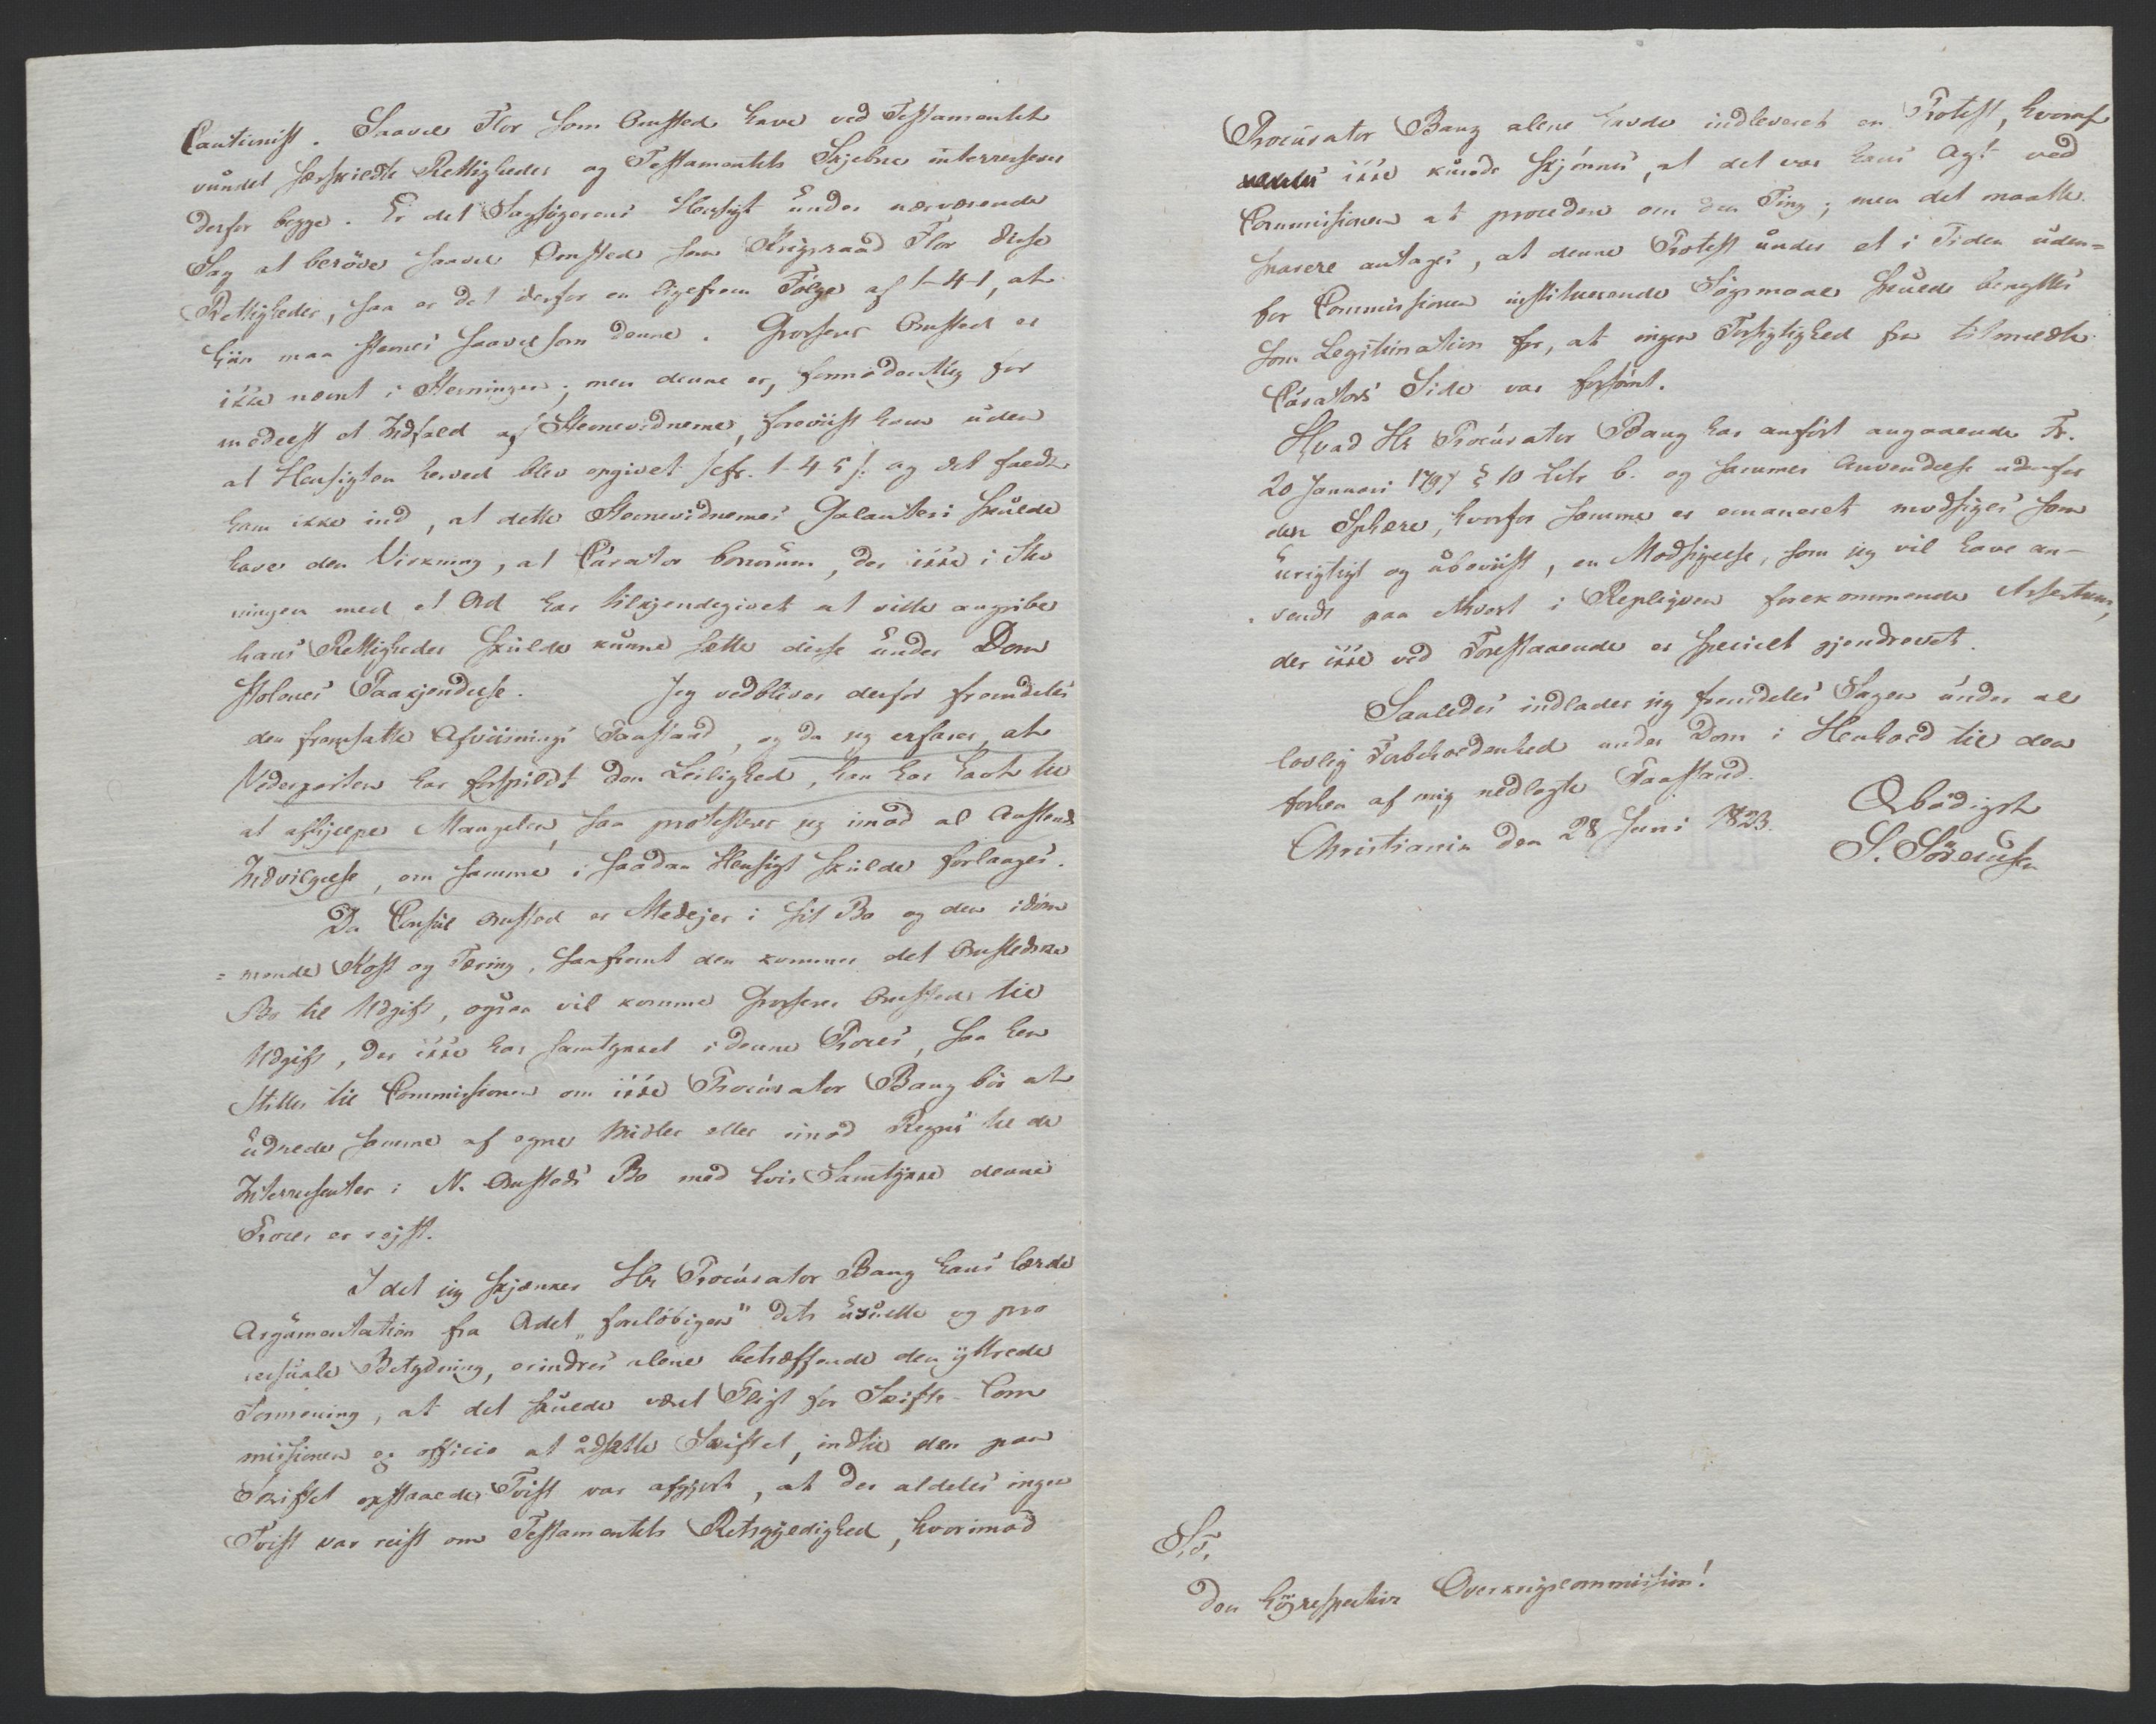 Cautionist. Saavel Flor som Omsted have ved Testamentet
vundet særskildte Rettigheder og Testamentets Skjebne interesserer
derfor begge. Er det Sagsøgerens Hensigt under nærværende
Sag at beröve saavel Omsted som Krigsraad Flor disse
Rettigheder, saa er det derfor en ligefrem Fölge af 1-4-1, at
hiin maa stevnes saavelsom denne. Grosserer Omsted er
ikke nævnt i Stevningen; men denne er, formodentlig for
medelst et Indfald af Stevnevidnerne, foreviist ham uden
at Hensigten herved blev opgivet /:cfr. 1-4-5:/ og det faldt
ham ikke ind, at dette Stevnevidnernes Galanteri skulde
have den Virkning, at Curator bonorum, der ikke i Stev
ningen med et Ord har tilkjendegivet at ville angribe
hans Rettigheder skulde kunne sætte disse under Dom
stolenes Paakjendelse. Jeg vedbliver derfor fremdeles
den fremsatte Afviisnings Paastand, og da jeg erfarer at
Vederparten har forspildt den Leilighed, han har havt til
at afhjelpe Mangelen, saa protesterer jeg imod al Anstands
Indvilgelse, om samme i saadan Hensigt skulde forlanges.
Da Consul Omsted er Medejer i sit Bo og den idöm
=mende Kost og Tæring, saafremt den kommer det Omstedske
Bo til Udgift, ogsaa vil komme Grosserer Omsted til
Udgift, der ikke har samtykket i denne Proces, saa hen
stilles til Commissionen om ikke Procurator Bang bör at
udrede samme af egne Midler eller imod Regres til de
Interessenter i N. Omsteds Bo med hvis Samtykke denne
Proces er rejst.
I det jeg skjænker Hr Procurator Bang hans lærde
Argumentation fra Ordet "foreløbigen" dets usuelle og pro
cessuale Betydning, erindres alene betræffende den yttrede
Formening, at det skulde været Pligt for Skifte-Com
missionen ex officio at udsætte Skiftet, indtil den paa
Skiftet opstaaede Tvist var afgjort, at der aldeles ingen
Tvist var reist om Testamentets Retsgyldighed, hvorimod
Procurator Bang alene havde indleveret en Protest, hvoraf
ikke kunde skjönnes, at det var hans Agt ved
Commissionen at procedere om den Ting; men det maatte
snarere antages, at denne Protest under et i Tiden uden=
for Commissionen instituerende Søgsmaal skulde benyttes
som Legitimation for, at ingen Forsigtighed fra
Curators Side var forsömt.
Hvad Hr Procurator Bang har anfört angaaende Fr.
20 Januari 1797 § 10 Litr b. og sammes Anvendelse udenfor
den Sphære, hvorfor samme er emaneret modsiges som
urigtigt og ubeviist, en Modsigelse, som jeg vil have an-
vendt paa ethvert i Repliqven forekommende Assertum,
der ikke ved Forestaaende er specielt gjendrevet.
Saaledes indlader jeg fremdeles Sagen under al
lovlig Forbeholdenhed under Dom i Henhold til den
forhen af mig nedlagte Paastand.
Christiania den 28 Juni 1823. Ærbödigst
S. Sörensen
S. T.
Den höjrespective Overkrigscommission!